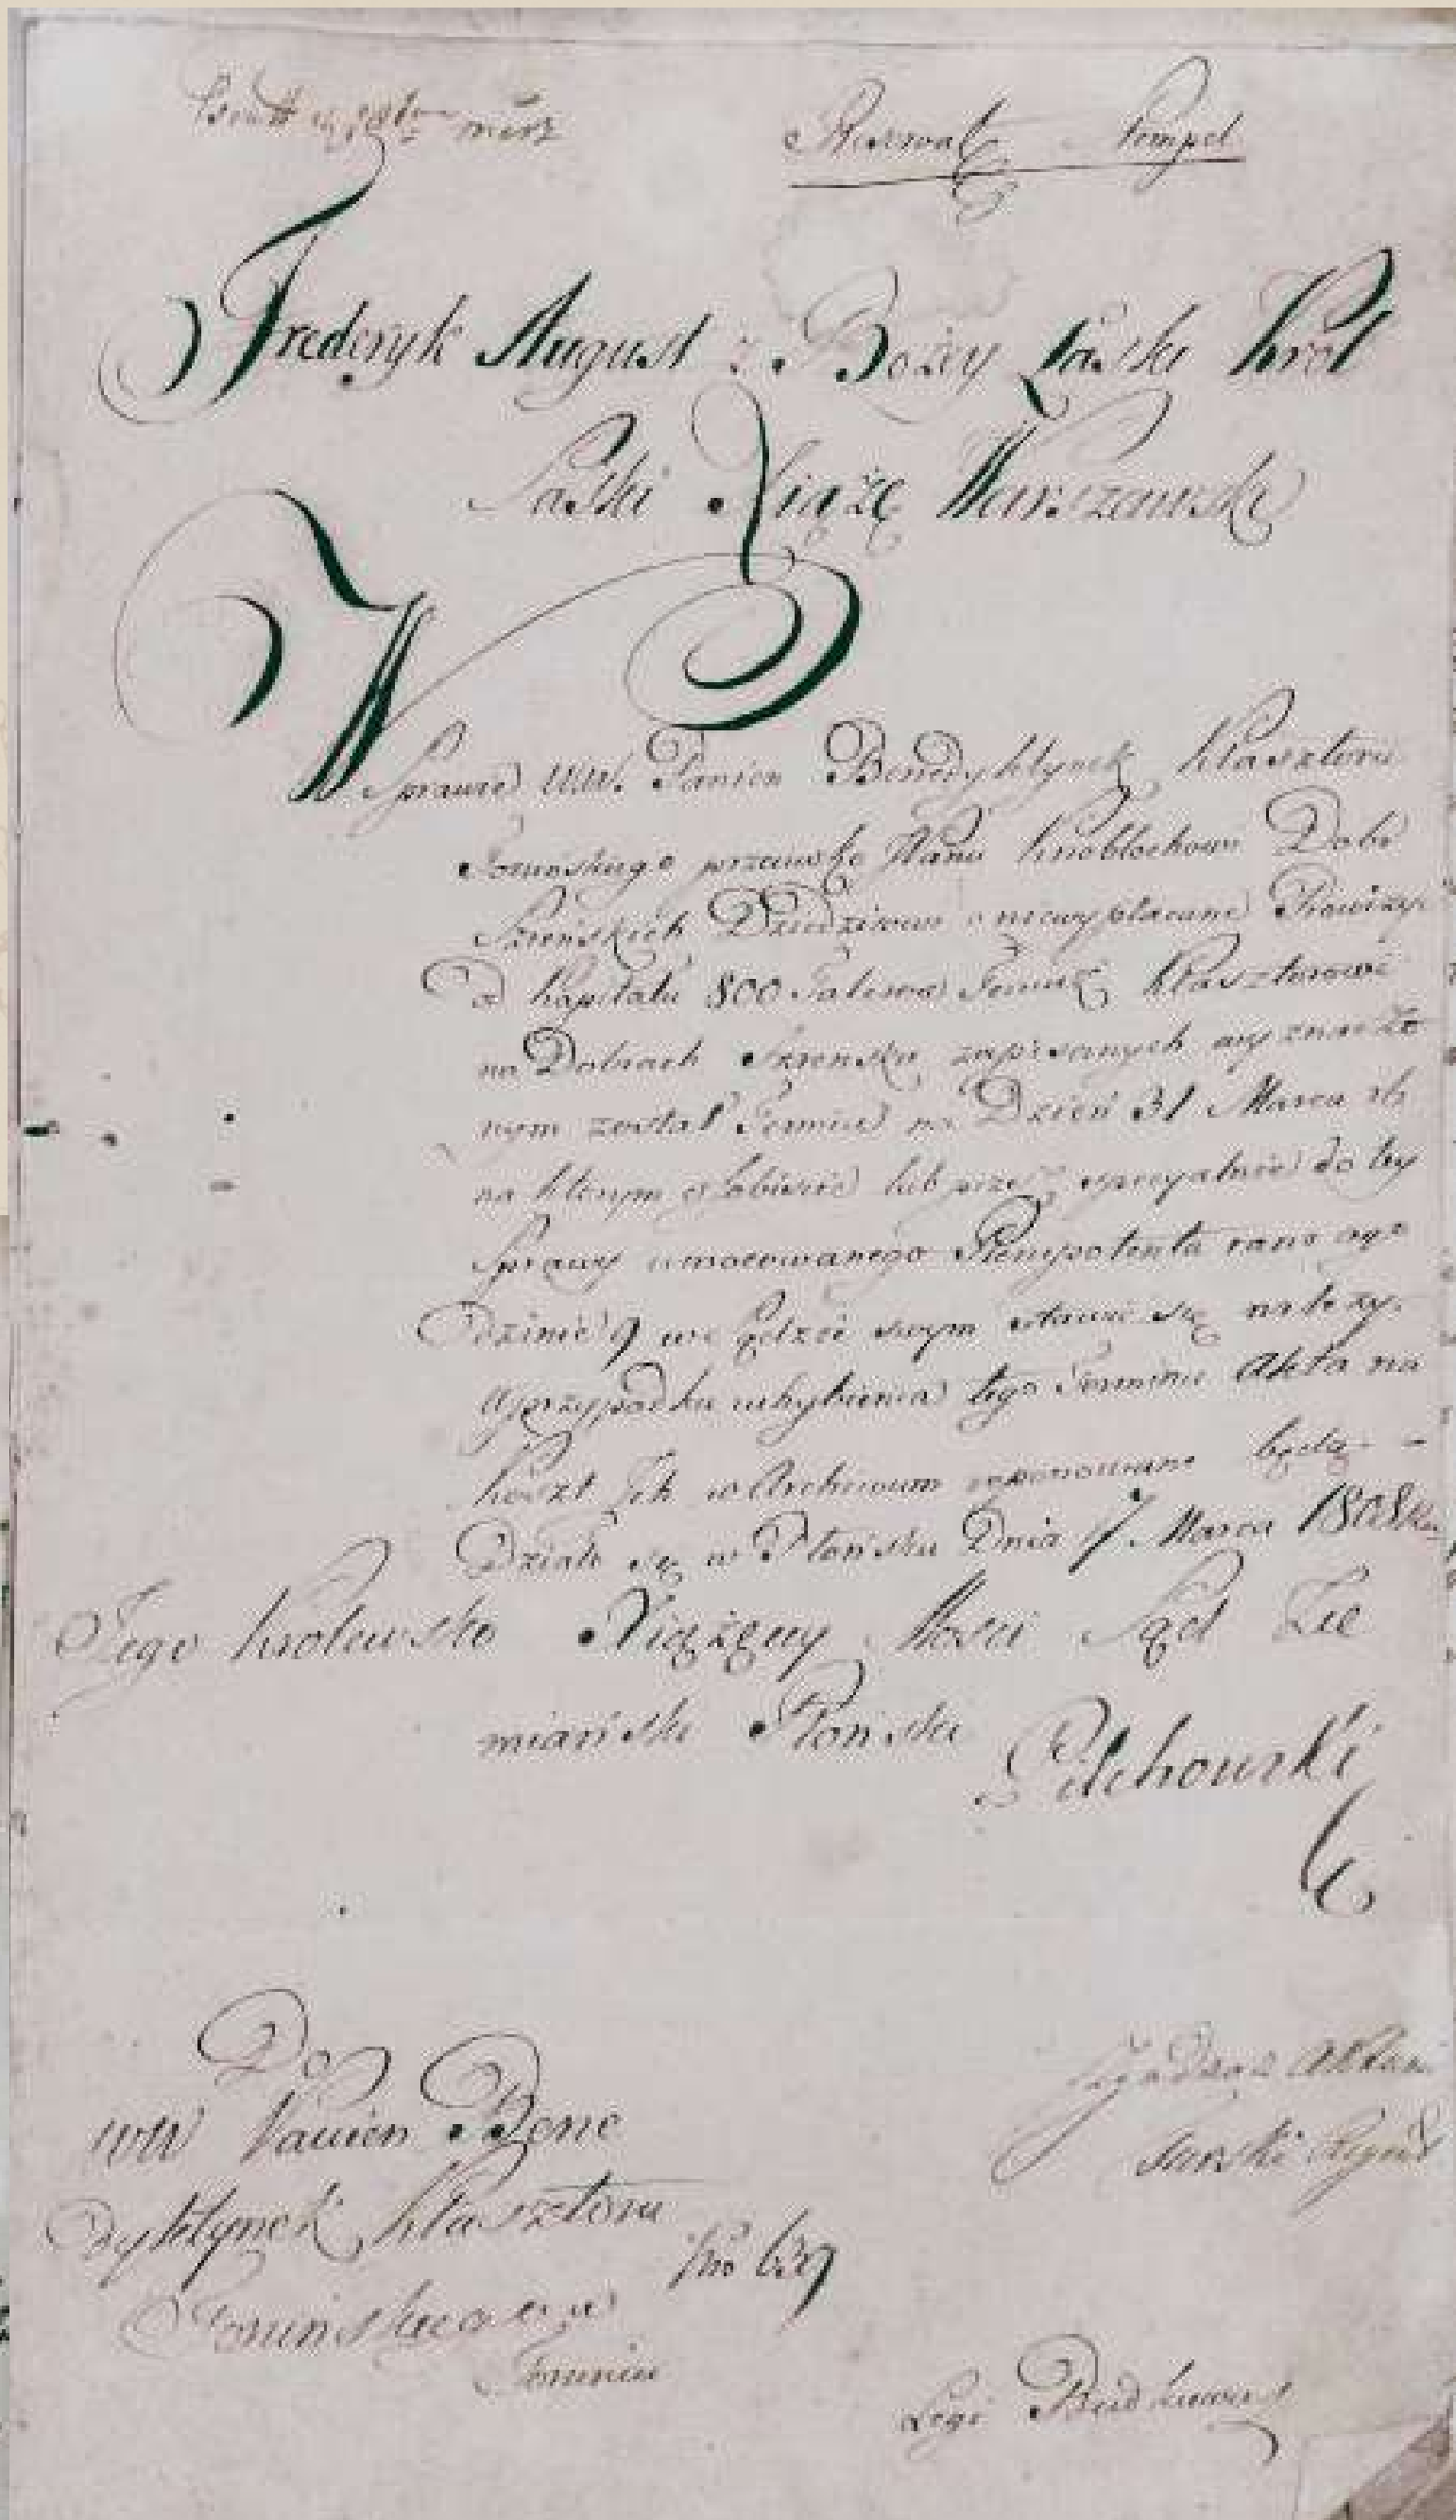 März
Stempel
Frederyk August z Bożey Łaski Krol
Saski Xiążę Warszawski
W Sprawie WW. Panien Benedyktynek Klasztoru
Toruńskiego przeciwko Knoblochowi Dobr
Szreńskich Dziedzicowi o niewypłacane Prowizye
Od kapitału 800 Talerow Temuż Klasztorowi
na Dobrach Szreńsku zapisanych wyznaczo
nym został Termin na Dzień 31 Marca rb
na ktorym osobiście lub przez specyalnie do tey
Sprawy umocowanego Plenipotenta rano ogo
Dzinie 9 w Sądzie swym stawić się należy.
W przypadku uchybienia tego Terminu Akta na
koszt Ich w Archiwum reponowane będą -
Działo się w Płońsku Dnia 7 Marca 1808
Jego Krolewsko Xiążęcy Mości Sąd Zie
miański Płoński
Pilchowski
Do
WW Panien Bene
Dyktynek Klasztoru
Toruńskiego w
Toruniu
Legi